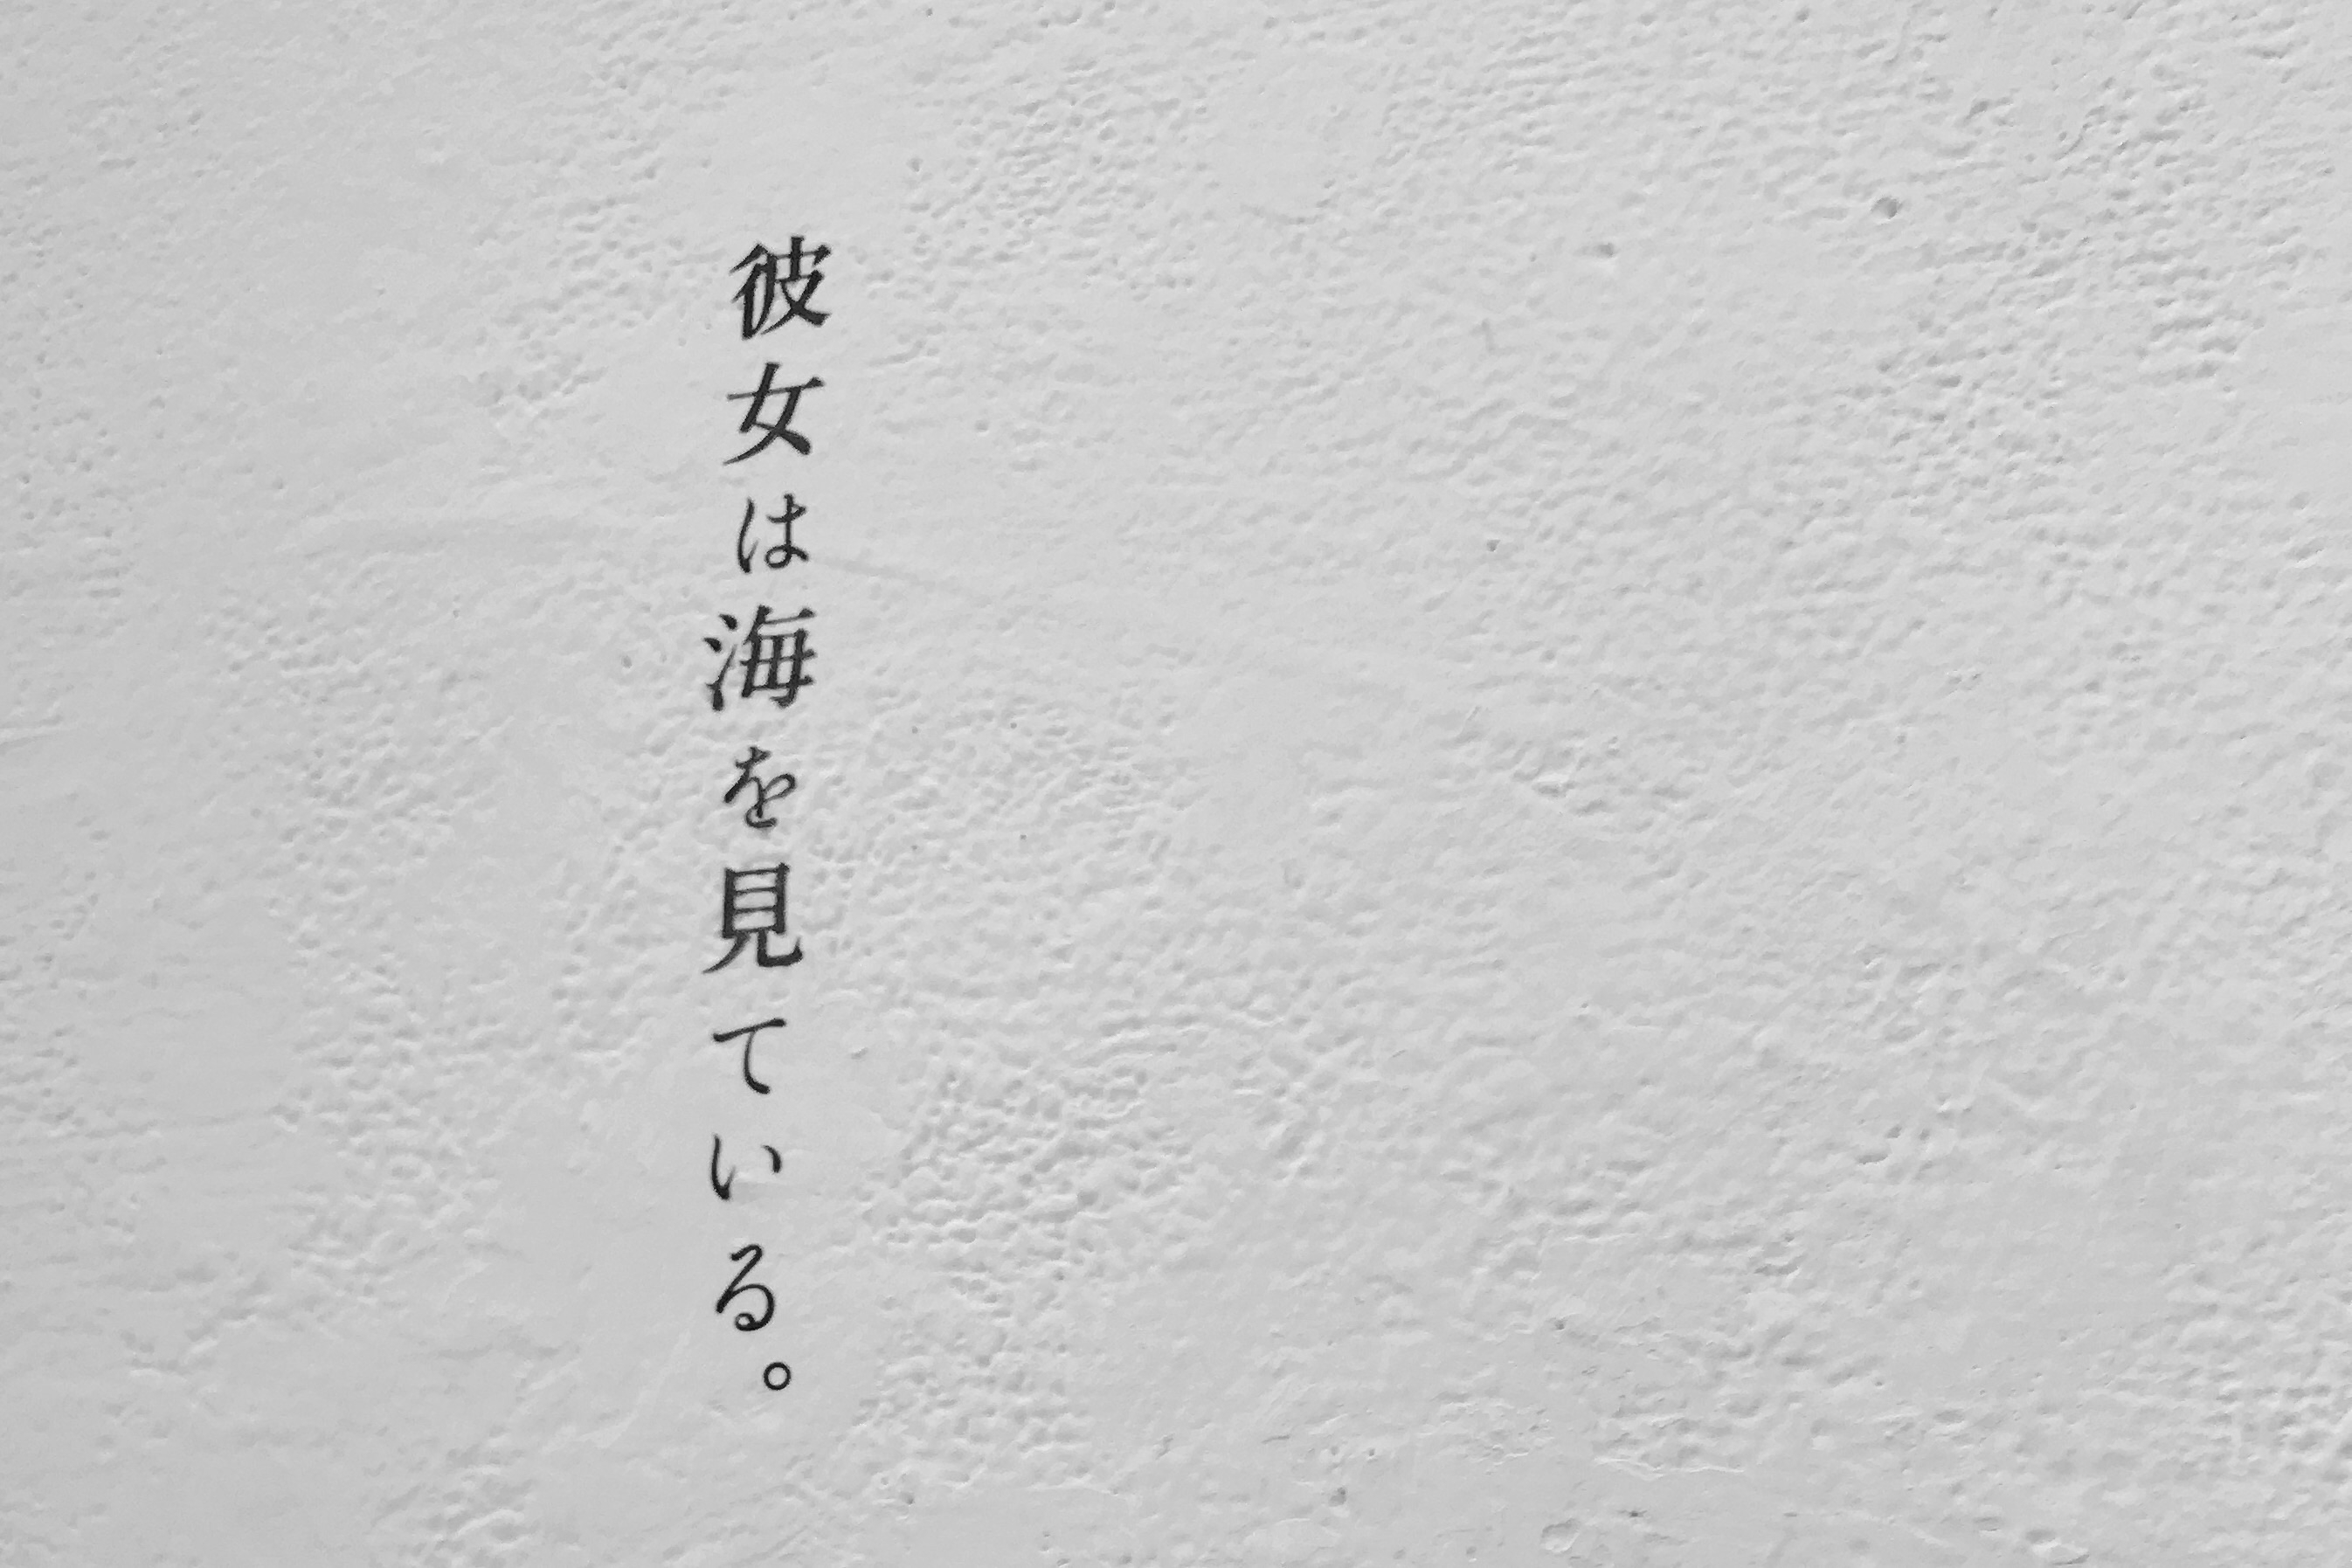 彼女は海を見ている。